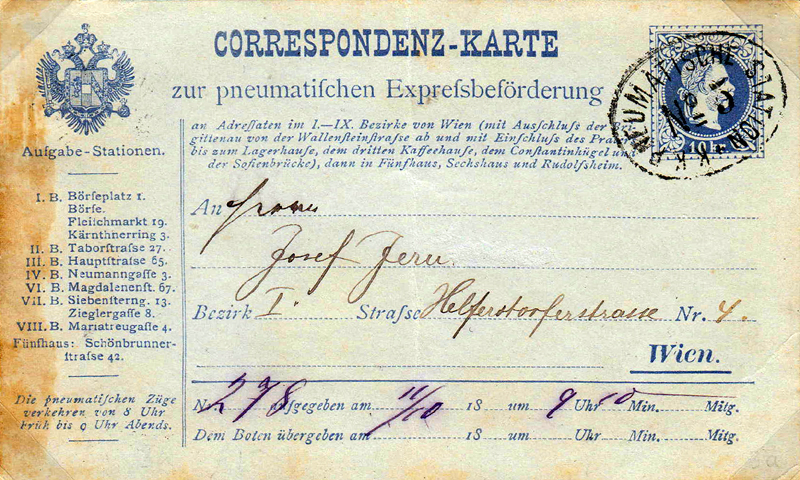 CORRESPONDENZ-KARTE
zur pneumatiſchen Expreſsbeförderung
an Adreſſaten im I.—IX. Bezirke von Wien (mit Ausſchluſs der
gittenau von der Wallenſteinſtraſse ab und mit Einſchluſs des Pra
bis zum Lagerhauſe, dem dritten Kaffeehauſe, dem Conſtantinhügel und
der Sofienbrücke), dann in Fünfhaus, Sechshaus und Rudolfsheim.
PNEUMATISCHE STATION K.K.
No 5
10 kr.
Aufgabe-Stationen.
I. B. Börſeplatz 1.
Börſe.
Fleiſchmarkt 19.
Kärnthnerring 3.
II. B. Taborſtraſse 27.
III. B. Hauptſtraſse 65.
IV. B. Neumanngaſſe 3.
VI. B. Magdalenenſt. 67.
VII. B. Siebenſterng. 13.
Zieglergaſſe 8.
VIII. B. Mariatreugaſſe 4.
Fünfhaus: Schönbrunner-
ſtraſse 42.
Die pneumatiſchen Züge
verkehren von 8 Uhr
Früh bis 9 Uhr Abends.
An Herrn
Josef
Bezirk I. Straſse Helferstorferstrasse Nr. 4.
Wien.
Nr. 278 aufgegeben am 11/10 18 um 9 Uhr 50 Min. Mitg.
Dem Boten übergeben am 18 um Uhr Min. Mitg.